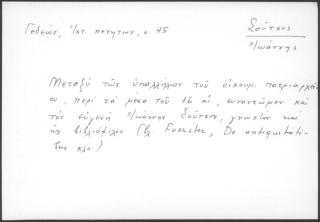 Γεδεών, Πατ. πινήτων, σ. 45
Σούτσος
Ἰωάννης
Μεταξὺ τῶν ὑπαλλήλων τοῦ οἰκουμ. πατριαρχεί
ου, περὶ τὰ μέσα τοῦ 16 αἰ., συναντῶμεν καὶ
τὸν εὐγενῆ Ἰωάννην Σοῦτσον, γνωστὸν καὶ
ὡς βιβλιόφιλον (βλ. Foerster, De antiquitati-
bus κλπ.)